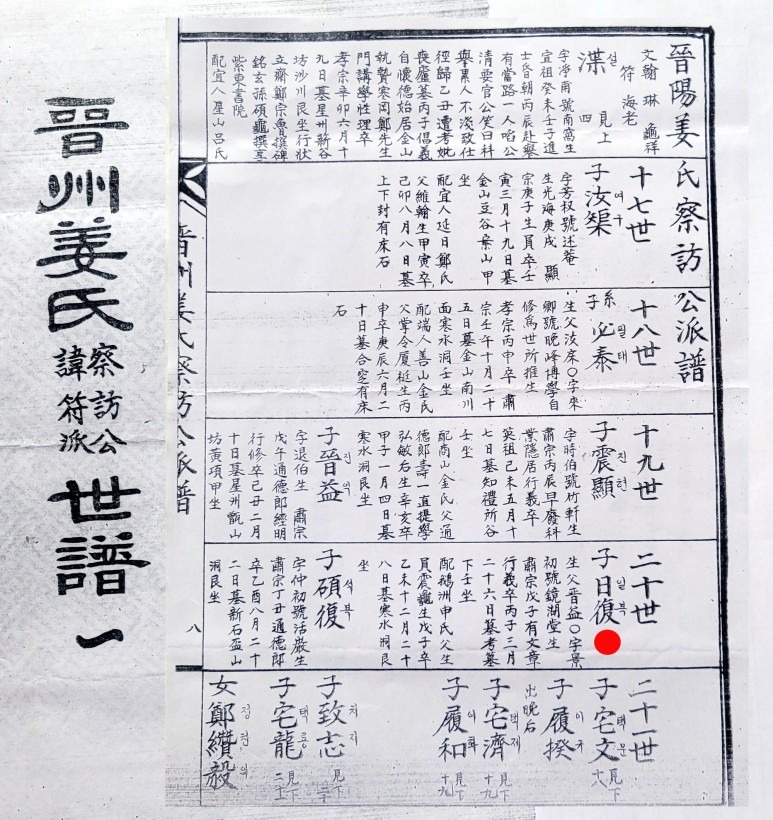 晉陽姜氏察訪公派譜
文翰 琳 龜祥
符 海老
渫 설 見上 四
字淨甫 號南窩生
宣祖癸未壬子進
士昏朝丙辰赴擧
有當路一人啗公
清要官公笑曰科
擧累人不淺致仕
徑歸乙丑遭考妣
喪廬墓丙子倡義
自懷德始居金山
執贄寒岡鄭先生
門講學性理卒
孝宗辛卯六月十
九日墓星州薪谷
坊沙川艮坐行狀
立齋鄭宗魯撰碑
銘玄孫碩龜撰享
紫東書院
配宜人星山 呂氏
十七世
子汝㮚 여구
字芳叔號述菴
生光海庚戌 顯
宗庚子生員卒壬
寅三月十九日墓
金山豆谷案山甲
坐
配宜人延日鄭氏
父維翰生甲寅卒
己卯八月八日墓
上下封有床石
十八世
系子必泰 필태
生父汝㦿〇字來
卿號晚峰博學自
修爲世所推生
孝宗丙申卒 肅
宗壬午十月二十
五日墓金山南川
面寒水洞壬坐
配端人善山金氏
父掌令廈梃生丙
申卒庚辰六月二
十日墓合窆有床
石
十九世
子震顯 진현
字時伯號竹軒生
肅宗丙辰早廢科
業隱居行義卒
英祖己未五月十
七日墓知禮所谷
壬坐
配商山金氏父通
德郎壽一直提學
弘敏后生辛亥卒
甲子一月四日墓
寒水洞艮坐
子晉益 진익
字退伯生 肅宗
戊午通德郎經明
行修卒己丑二月
十日墓星洲甑山
坊黃項甲坐
二十世
子日復 일복
生父晉益〇字景
初號鏡湖堂生
肅宗戊子有文章
行義卒丙子三月
二十六日墓考墓
下壬坐
配鵝洲申氏父生
員震龜生戊子卒
乙未十二月二十
八日墓寒水洞艮
坐
子碩復 석복
字仲初號活巖生
肅宗丁丑通德郎
卒乙酉八月二十
二日墓新石盃山
洞艮坐
二十一世
子宅文 택문 見下 十八
子履揆 이규 出晚后
子宅濟 택제 見下 十九
子履和 이화 見下 十九
子致志 치지 見下 二十
子宅龍 택룡 見下 二十
女鄭纘毅 정찬의
晋州姜氏察訪公派譜
八
晉州姜氏
察訪公
諱符派
世譜 一